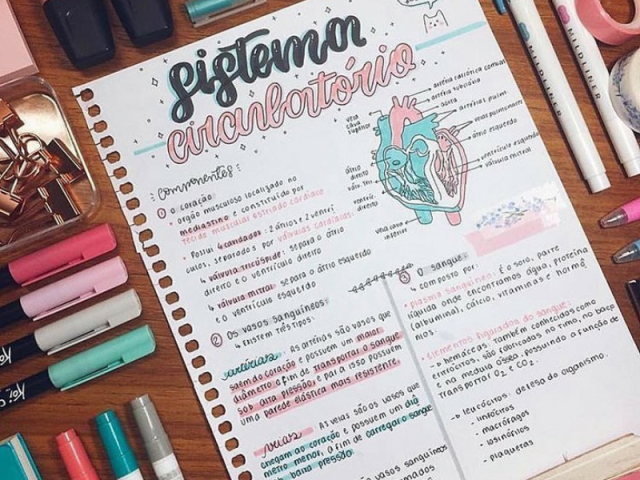 sistema
circulatório
componentes
1 o coração
• órgão muscoloso localizado no
mediastino e constituído por
tecido muscular estriado cardíaco
• Possui 4 cavidades: 2 átrios e 2 ventrí-
culos, separados por válvulas cardíacas:
↳ válvula tricúspide: separa o átrio
direito e o ventrículo direito
↳ válvula mitral: separa o átrio esquerdo
e o ventrículo esquerdo
2 Os vasos sanguíneos:
↳ existem três tipos:
artérias: As artérias são vasos que
saem do coração e possuem um maior
diâmetro a fim de transportar o sangue
sob alta pressão, e para isso possuem
uma parede elástica mais resistente.
veias: As veias são os vasos que
chegam ao coração e possuem um diâ
metro menor, a fim de carregar o sangue
↳ baixa pressão
vasos sanguíneos
veia cava superior
átrio direito
ventríc. direito
veia cava inferior
artéria carótida comum
artéria subclávia
aorta
artéria pulm.
átrio esquerdo
ventrículo esquerdo
válvula mitral
3 O sangue
↳ composto por:
• plasma sanguíneo: É o soro, parte
líquida onde encontramos água, proteína
(albumina), cálcio, vitaminas e hormô
nios.
• elementos figurados do sangue:
↳ hemácias: também conhecidas como
eritrócitos, são fabricadas no timo, no baço
e na medula óssea. Possuindo a função de
transportar O2 e CO2.
↳ leucócitos: defesa do organismo.
• linfócitos
• macrófagos
• plaquetas
MILDLINER
MILDLINER